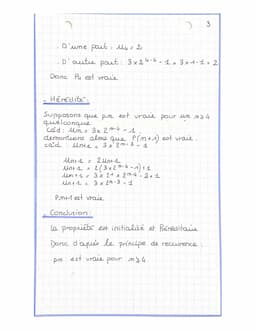 3
. D'une part : U4 = 2
. D'autre part : 3 x 2^4-4 - 1 = 3 x 1 - 1 = 2
Donc P4 est vraie
. Hérédité :
Supposons que pn est vraie pour un n ≥ 4
quelconque
Càd : Un = 3 x 2^n-4 - 1.
démontrons alors que P(n+1) est vraie.
càd Un+1 = 3 x 2^n-3 - 1
Un+1 = 2Un + 1
Un+1 = 2(3 x 2^n-4 - 1) + 1
Un+1 = 3 x 2^1 x 2^n-4 - 2 + 1
Un+1 = 3 x 2^n-3 - 1
Pn+1 est vraie
. Conclusion :
la propriété est initialisé et Héréditaire
Donc d'après le principe de recurence :
pn est vraie pour n ≥ 4.